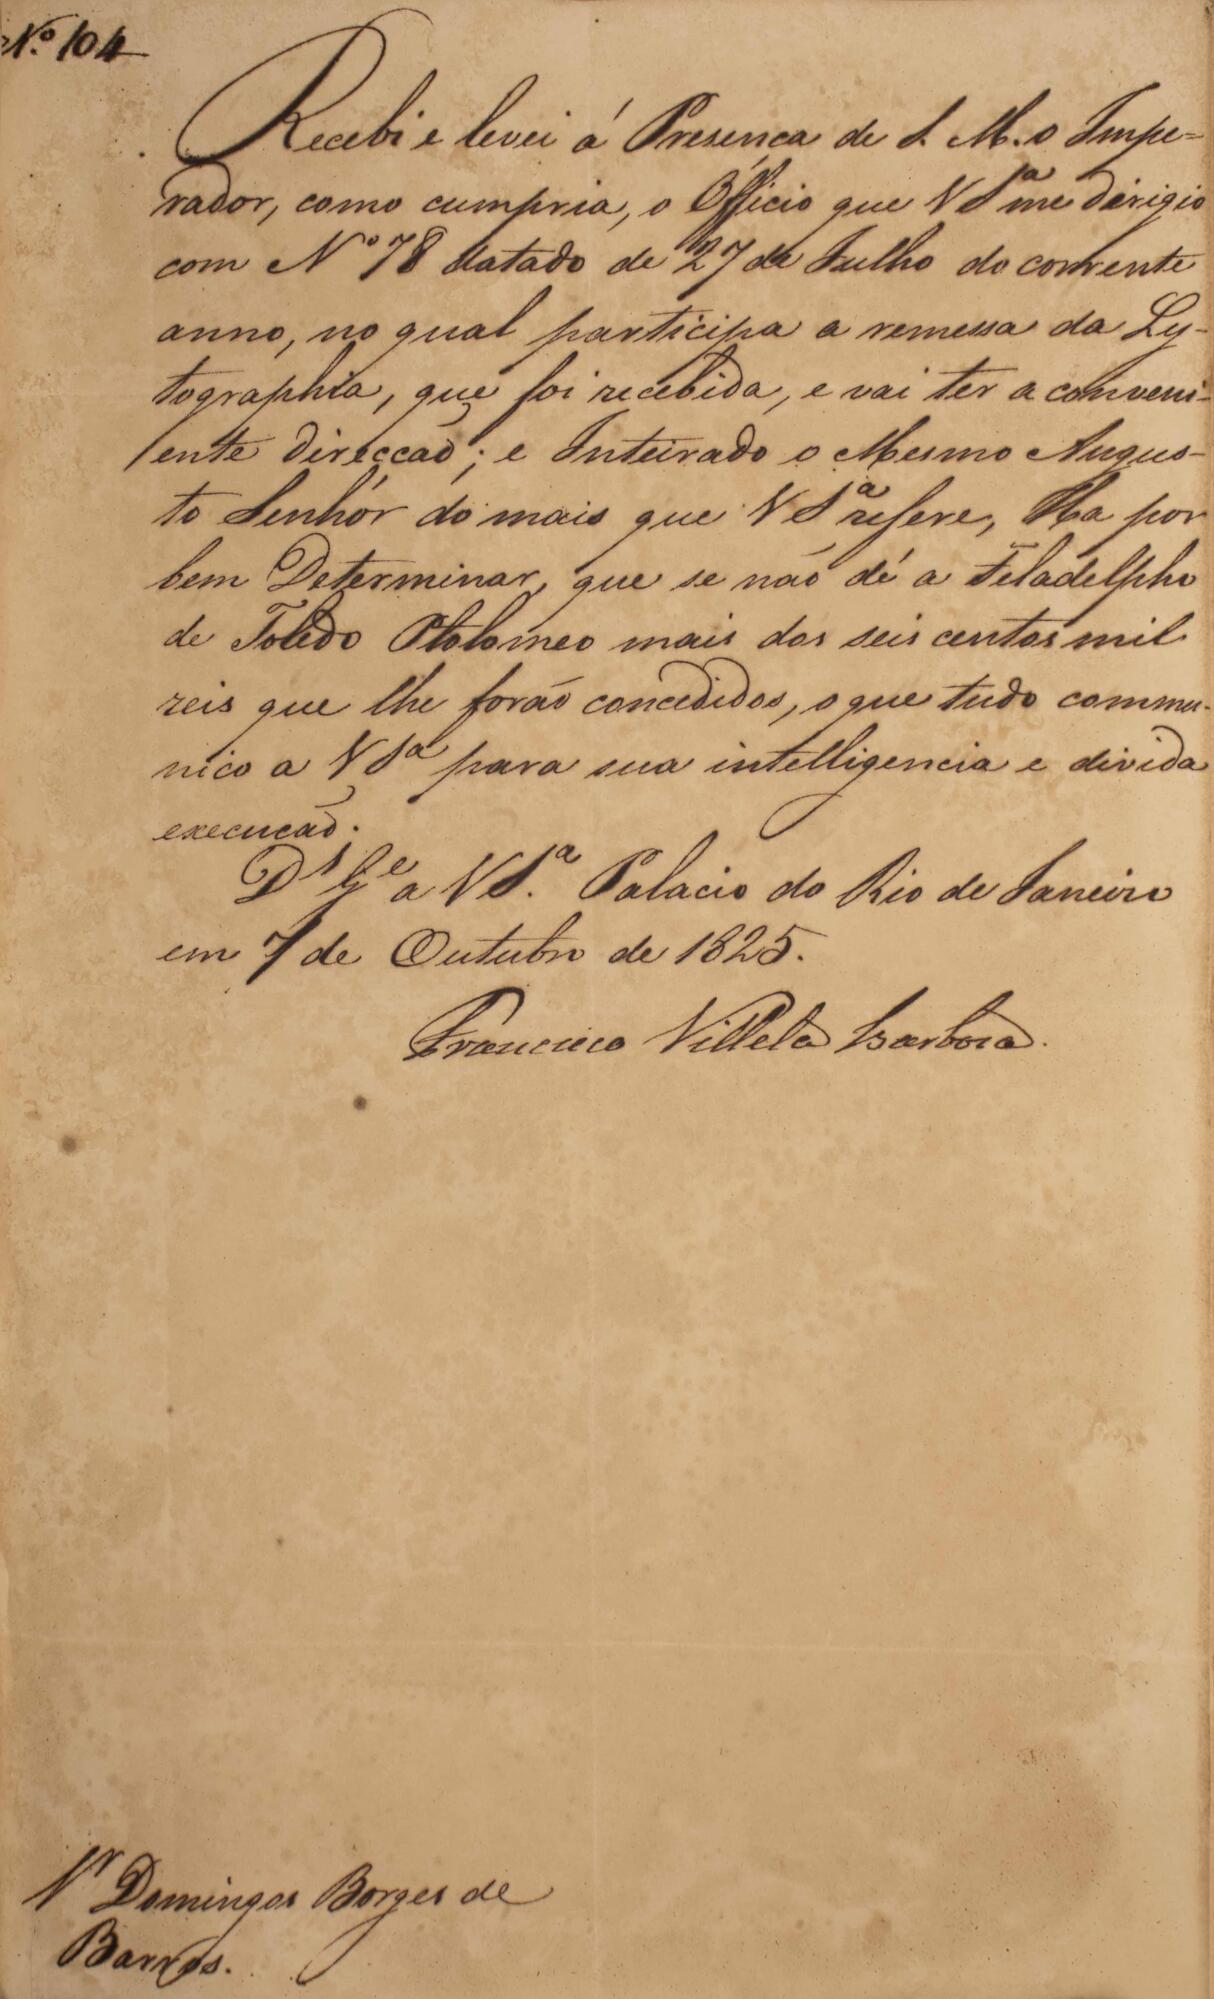 Nº 104
Recebi e levei á Presença de S. M. o Impe=
rador, como cumpria, o Officio que V Sª me dirigio
com Nº 78 datado de 27 de Julho do corrente
anno, no qual participa a remessa da Ly-
tographia, que foi recebida, e vai ter a conveni-
ente direcção; e Inteirado o Mesmo Augus-
to Senhor do mais que V Sª refere, Ha por
bem Determinar, que se não dê a Feladelpho
de Toledo Ptolomeo mais dos seis centos mil
reis que lhe forão concedidos, o que tudo commu-
nico a V Sª para sua intelligencia e divida
execução.
Ds Ge a V S.ª Palacio do Rio de Janeiro
em 7 de Outubro de 1825.
Francisco Villela Barboza.
Sr Domingos Borges de
Barros.